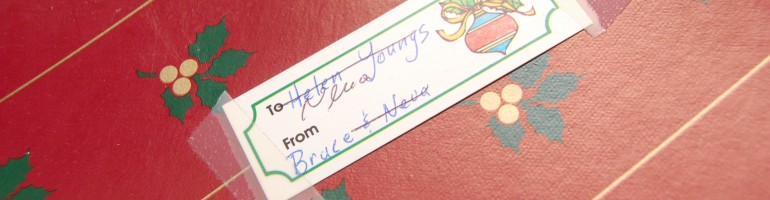 To Helen Youngs
Neva
From
Bruce & Neva